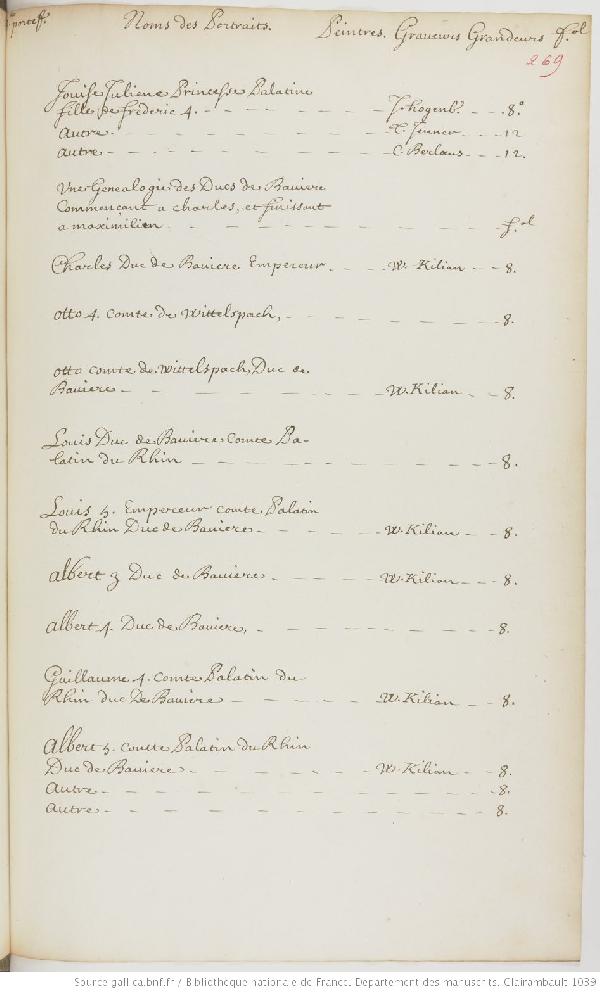 porteff. Noms des Portraits. Peintres. Graveurs Grandeurs fol
269
Louise Juliene Princesse Palatine
fille de frederic 4. - - - - - - 8°
autre - - - - - 12
autre - - - - - C. Berlaus - - - 12.
Une Genealogie des Ducs de Baviere
Commencant a charles, et finissant
a maximilien - - - - - - fol
Charles Duc de Baviere Empereur. - - - W. Kilian - - - 8.
otto 4. comte de Wittelspach, - - - - - - 8.
otto comte de Wittelspach Duc de
Baviere - - - - - W. Kilian - - - 8.
Louis Duc de Baviere Comte Pa-
latin du Rhin - - - - - - 8.
Louis 5. Empereur comte Palatin
du Rhin Duc de Baviere - - - - W. Kilian - - - 8.
albert 3 Duc de Baviere - - - - W. Kilian - - - 8.
albert 4. Duc de Baviere, - - - - - - 8.
Guillaume 4. comte Palatin du
Rhin duc De Baviere - - - - W. Kilian - - 8.
albert 5. comte Palatin du Rhin
Duc de Baviere - - - - - W. Kilian - - 8.
autre - - - - - - 8.
autre - - - - - - 8.
Source gallica.bnf.fr / Bibliothèque nationale de France. Département des manuscrits. Clairambault 1039